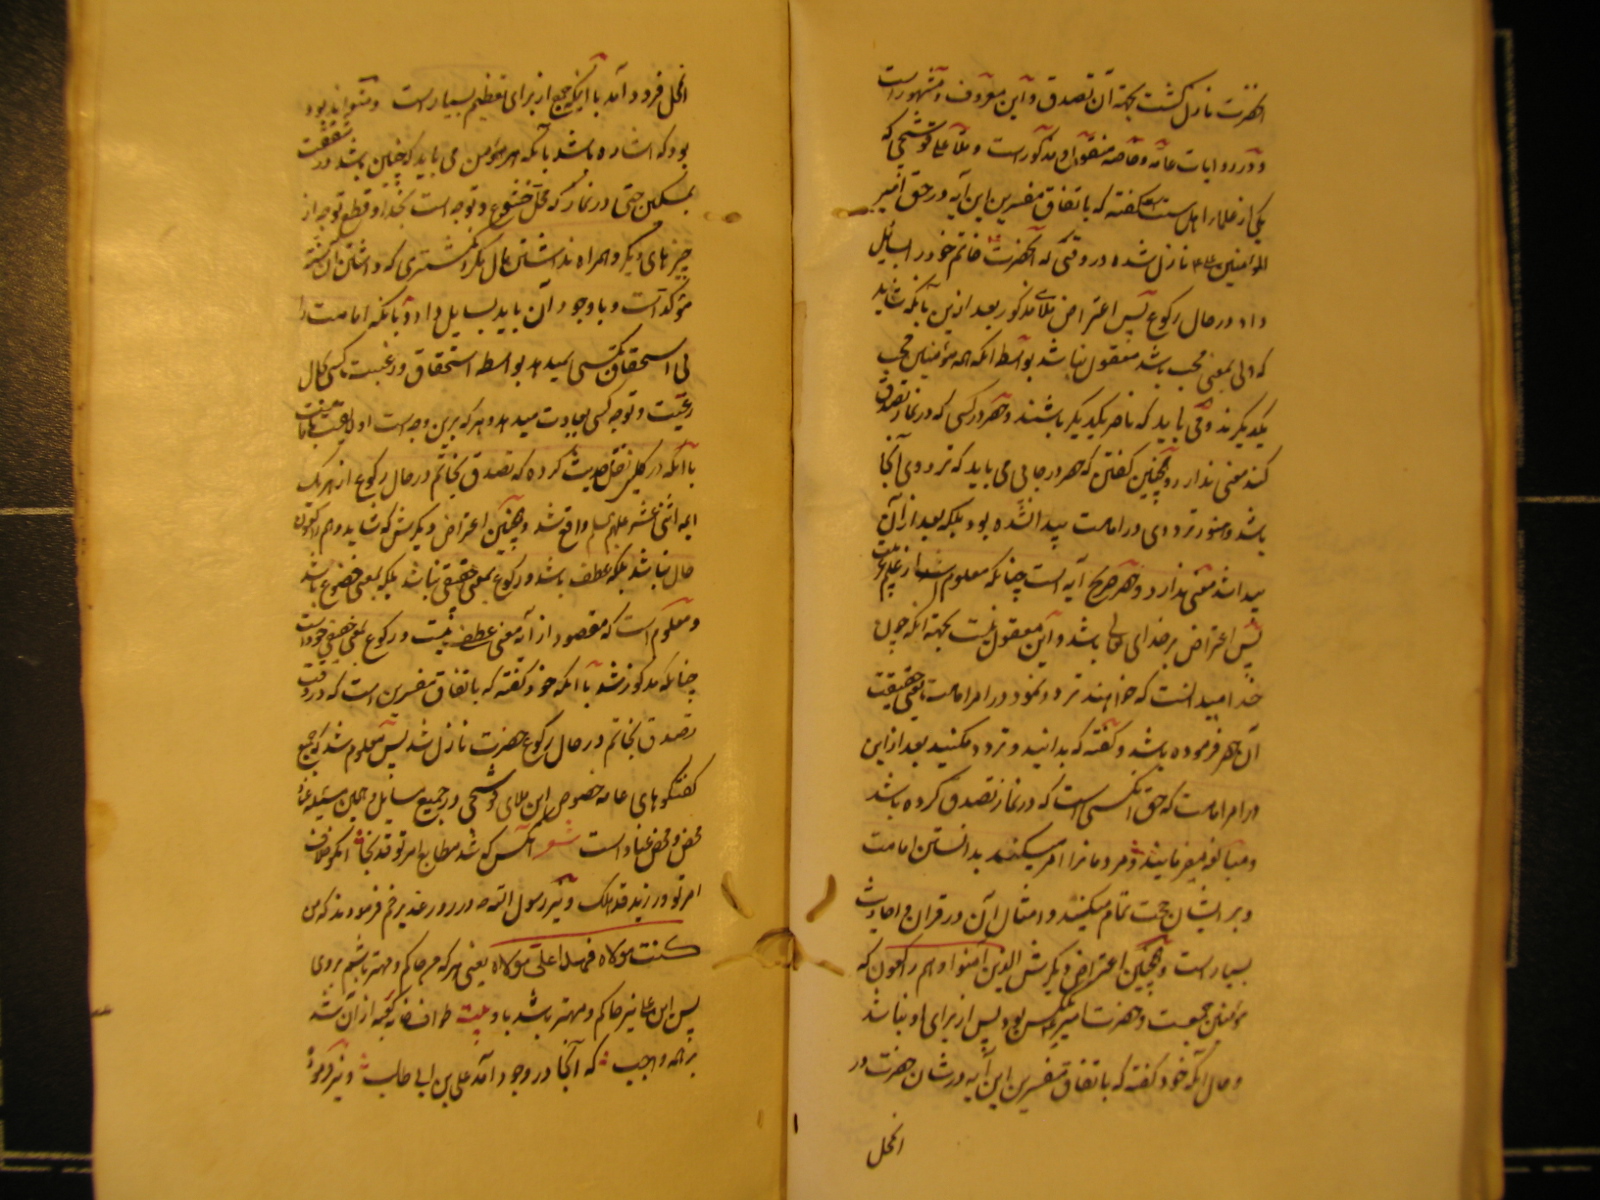 آنحضرت نازل گشت بجهة آن تصدق و این معروف و مشهور است
و در روایات عامه و خاصه منقول و مذکور است و ملا علی قوشچی که
یکی از علماء اهل سنت گفته که باتفاق مفسرین این آیه در حق امیر
المؤمنین نازل شده در وقتی که آنحضرت خاتم خود را بسایل
داد در حال رکوع پس اعتراض ملای مذکور بعد ازین بآنکه شاید
که ولی بمعنی محب باشد معقول نباشد بواسطه آنکه همه مؤمنین محب
یکدیگرند و می باید که ناصر یکدیگر باشند و حصر در کسی که در نماز تصدق
کند معنی ندارد و همچنین گفتن که حصر در جایی می باید که تردد در آنجا
باشد و هنوز ترددی در امامت پیدا نشده بود بلکه بعد از آن
پیدا شد معنی ندارد و حصر صریح آیه است چنانکه معلوم شد از علم عربیت
پس اعتراض بر خدای تعالی باشد و این معقول نیست بجهة آنکه چون
خدا میدانست که خواهند تردد نمود در امر امامت یعنی حقیقت
آن حصر فرموده باشد و گفته که بدانید و تردد مکنید بعد ازین
در امر امامت که حق آنکسی است که در نماز تصدق کرده باشد
و مبالغه میفرمایند و مردمانرا امر میکنند بدانستن امامت
و بر ایشان حجت تمام میکنند و امثال آن در قران و احادیث
بسیار است و همچنین اعتراض دیگرش الذین آمنوا و هم راکعون که
مؤمنین جمعست و حضرت امیر یککس بود پس از برای او نباشد
و حال آنکه خود گفته که باتفاق مفسرین این آیه در شان حضرت در
انمحل
انمحل فرود آمد با آنکه جمع از برای تعظیم بسیار است و میتواند بود
بود که اشاره باشد بآنکه هر مؤمن می باید که چنین باشد در شفقت
بمسکین حتی در نماز که محل خشوع و توجه است بخدا و قطع توجه از
چیزهای دیگر و همراه نداشتن مال مگر انگشتری که داشتن آن سنت
مؤکد است و با وجود آن باید بسایل داد و بآنکه امامت را
بی استحقاق بکسی نمیدهد بواسطه استحقاق و رغبت بکسی کمال
رغبت و توجه کسی بعبادت میدهد و هر که برین وجه است اولی بامامت
با آنکه در کلینی نقل حدیث کرده که تصدق بخاتم در حال رکوع از هر یک
ایمه اثنی عشر علیهم السلام واقع شد و همچنین اعتراض دیگرش که شاید و هم راکعون
حال نباشد بلکه عطف باشد و رکوع بمعنی حقیقی نباشد بلکه بمعنی خضوع باشد
و معلوم است که مقصود از آیه معنی عطف نیست و رکوع بمعنی حقیقی خود است
چنانکه مذکور شد با آنکه خود گفته که باتفاق مفسرین است که در وقت
تصدق بخاتم در حال رکوع حضرت نازل شد پس معلوم شد که جمیع
گفتگوهای عامه خصوص این ملای قوشچی در جمیع مسایل و همین مسئله عناد
محض و محض عناد است شعر آنکس که شد مطابع امر تو قد نجا آنکو خلاف
امر تو ورزید قد هلک و نیز رسول الله در روز غدیر خم فرمودند که من
کنت مولاه فهذا علی مولاه یعنی هر که من حاکم و مهتر باشم بر وی
پس این علی نیز حاکم و مهتر باشد باو بیت طواف خانه کعبه از آن شد
بر همه واجب که آنجا در وجود آمد علی بن ابی طالب و نیز فرموده